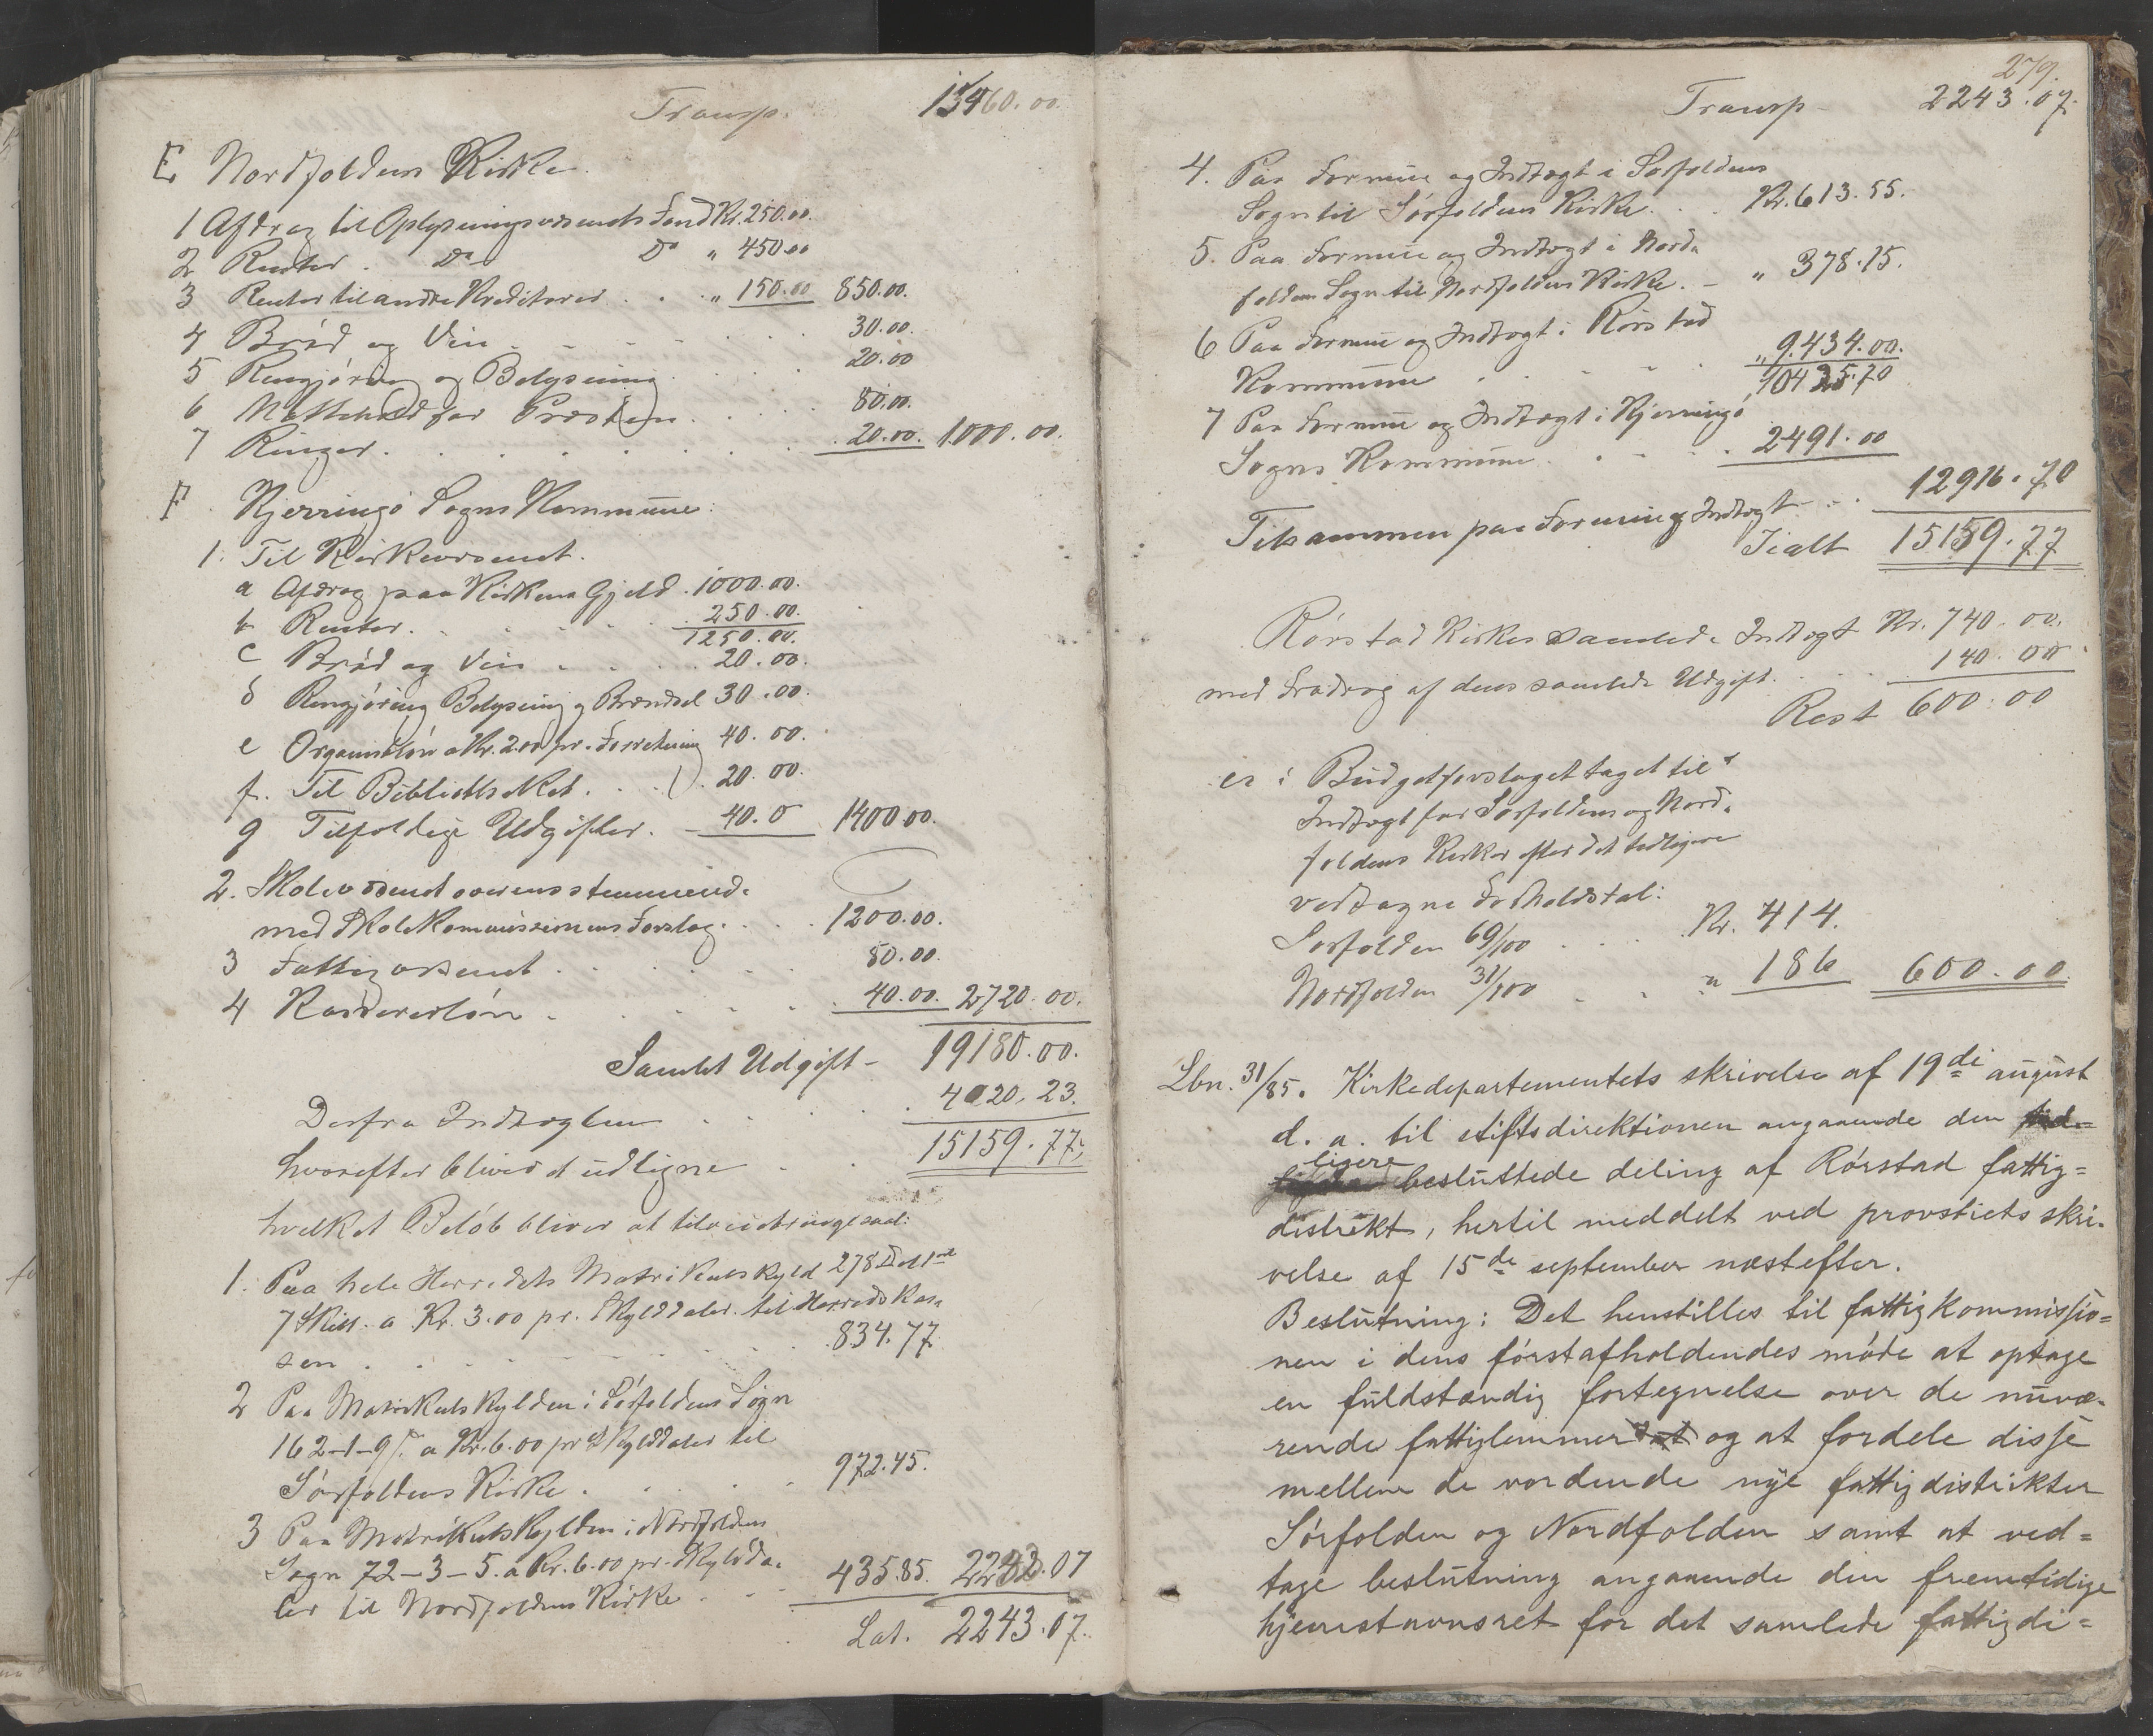 Transp. 15460.00
E Nordfoldens Kirke.
1 Afdrag til Oplysningsvæsenets Fond Kr. 250.00.
2 Renter . Do Do " 450.00
3 Renter til andre Kreditorer . . " 150.00 850.00.
4 Brød og Vin . . . . 30.00.
5 Rengjøring og Belysning . . . 20.00
6 Nattehold for Præsten . . . 80.00.
7 Ringer . . . . . 20.00. 1000.00.
F Kjerringø Sogns Kommune:
1. Til Kirkevæsenet.
a Afdrag paa Kirkens Gjeld . 1000.00.
b Renter . . . . 250.00.
1250.00.
c Brød og Vin . . . . 20.00.
d Rengjøring Belysning og Brændsel 30.00.
e Organistløn a Kr. 2.00 pr. Forretning 40.00.
f. Til Bibliotheket . . . 20.00.
g Tilfældige Udgifter . 40.0 1400.00.
2. Skolevæsenet overensstemmende
med Skolekommissionens Forslag . . . 1200.00.
3 Fattigvæsenet . . . . 80.00.
4 Kassererløn . . . . 40.00. 2720.00.
Samlet Udgift - 19180.00.
Derfra Indtægten . . . . 4020.23.
hvorefter bliver at udligne . . 15159.77.
hvilket Beløb bliver at tilveiebringe saal:
1. Paa hele Herredets Matrikulskyld 278 Dal 1 ort
7 Skill. a Kr. 3.00 pr. Skylddaler til Herredskas-
sen . . . . . . 834.77.
2 Paa Matrikulskylden i Sørfoldens Sogn
162-1-9 s. a Kr. 6.00 pr Skylddaler til
Sørfoldens Kirke . . . . 972.45.
3 Paa Matrikulskylden i Nordfolden
Sogn 72-3-5. a Kr. 6.00 pr. Skyldda-
ler til Nordfoldens Kirke . . 435.85. 2243.07
Lat. 2243.07.
279.
Transp - 2243.07.
4. Paa Formue og Indtægt i Sørfoldens
Sogn til Sørfoldens Kirke . . Kr. 613.55.
5. Paa Formue og Indtægt i Nord-
foldens Sogn til Nordfoldens Kirke. - " 378.15.
6 Paa Formue og Indtægt i Rørstad
Kommune . . . . " 9.434.00.
10425.70
7 Paa Formue og Indtægt i Kjerringø
Sogns Kommune . . . . 2491.00
12916.70
Tilsammen paa Formue og Indtægt . . .
Ialt 15159.77
Rørstad Kirkes samlede Indtægt Kr. 740.00.
med Fradrag af dens samlede Udgift . . 140.00
Rest 600.00
er i Budgetforslaget taget til
Indtægt for Sørfoldens og Nord-
foldens Kirker efter det tidligere
vedtagne Forholdstal:
Sørfolden 69/100 . . . Kr. 414.
Nordfolden 31/100 . . " 186 600.00.
Lbn. 31/85. Kirkedepartementets skrivelse af 19de august
d. a. til stiftsdirektionen angaaende den tid=
ligere besluttede deling af Rørstad fattig=
distrikt, hertil meddelt ved provstiets skri-
velse af 15de september næstefter.
Beslutning: Det henstilles til fattigkommissio=
nen i dens førstafholdendes møde at optage
en fuldstændig fortegnelse over de nuvæ-
rende fattiglemmer at og at fordele disse
mellem de vordende nye fattigdistrikter
Sørfolden og Nordfolden samt at ved=
tage beslutning angaaende den fremtidige
hjemstavnsret for det samlede fattigdi=